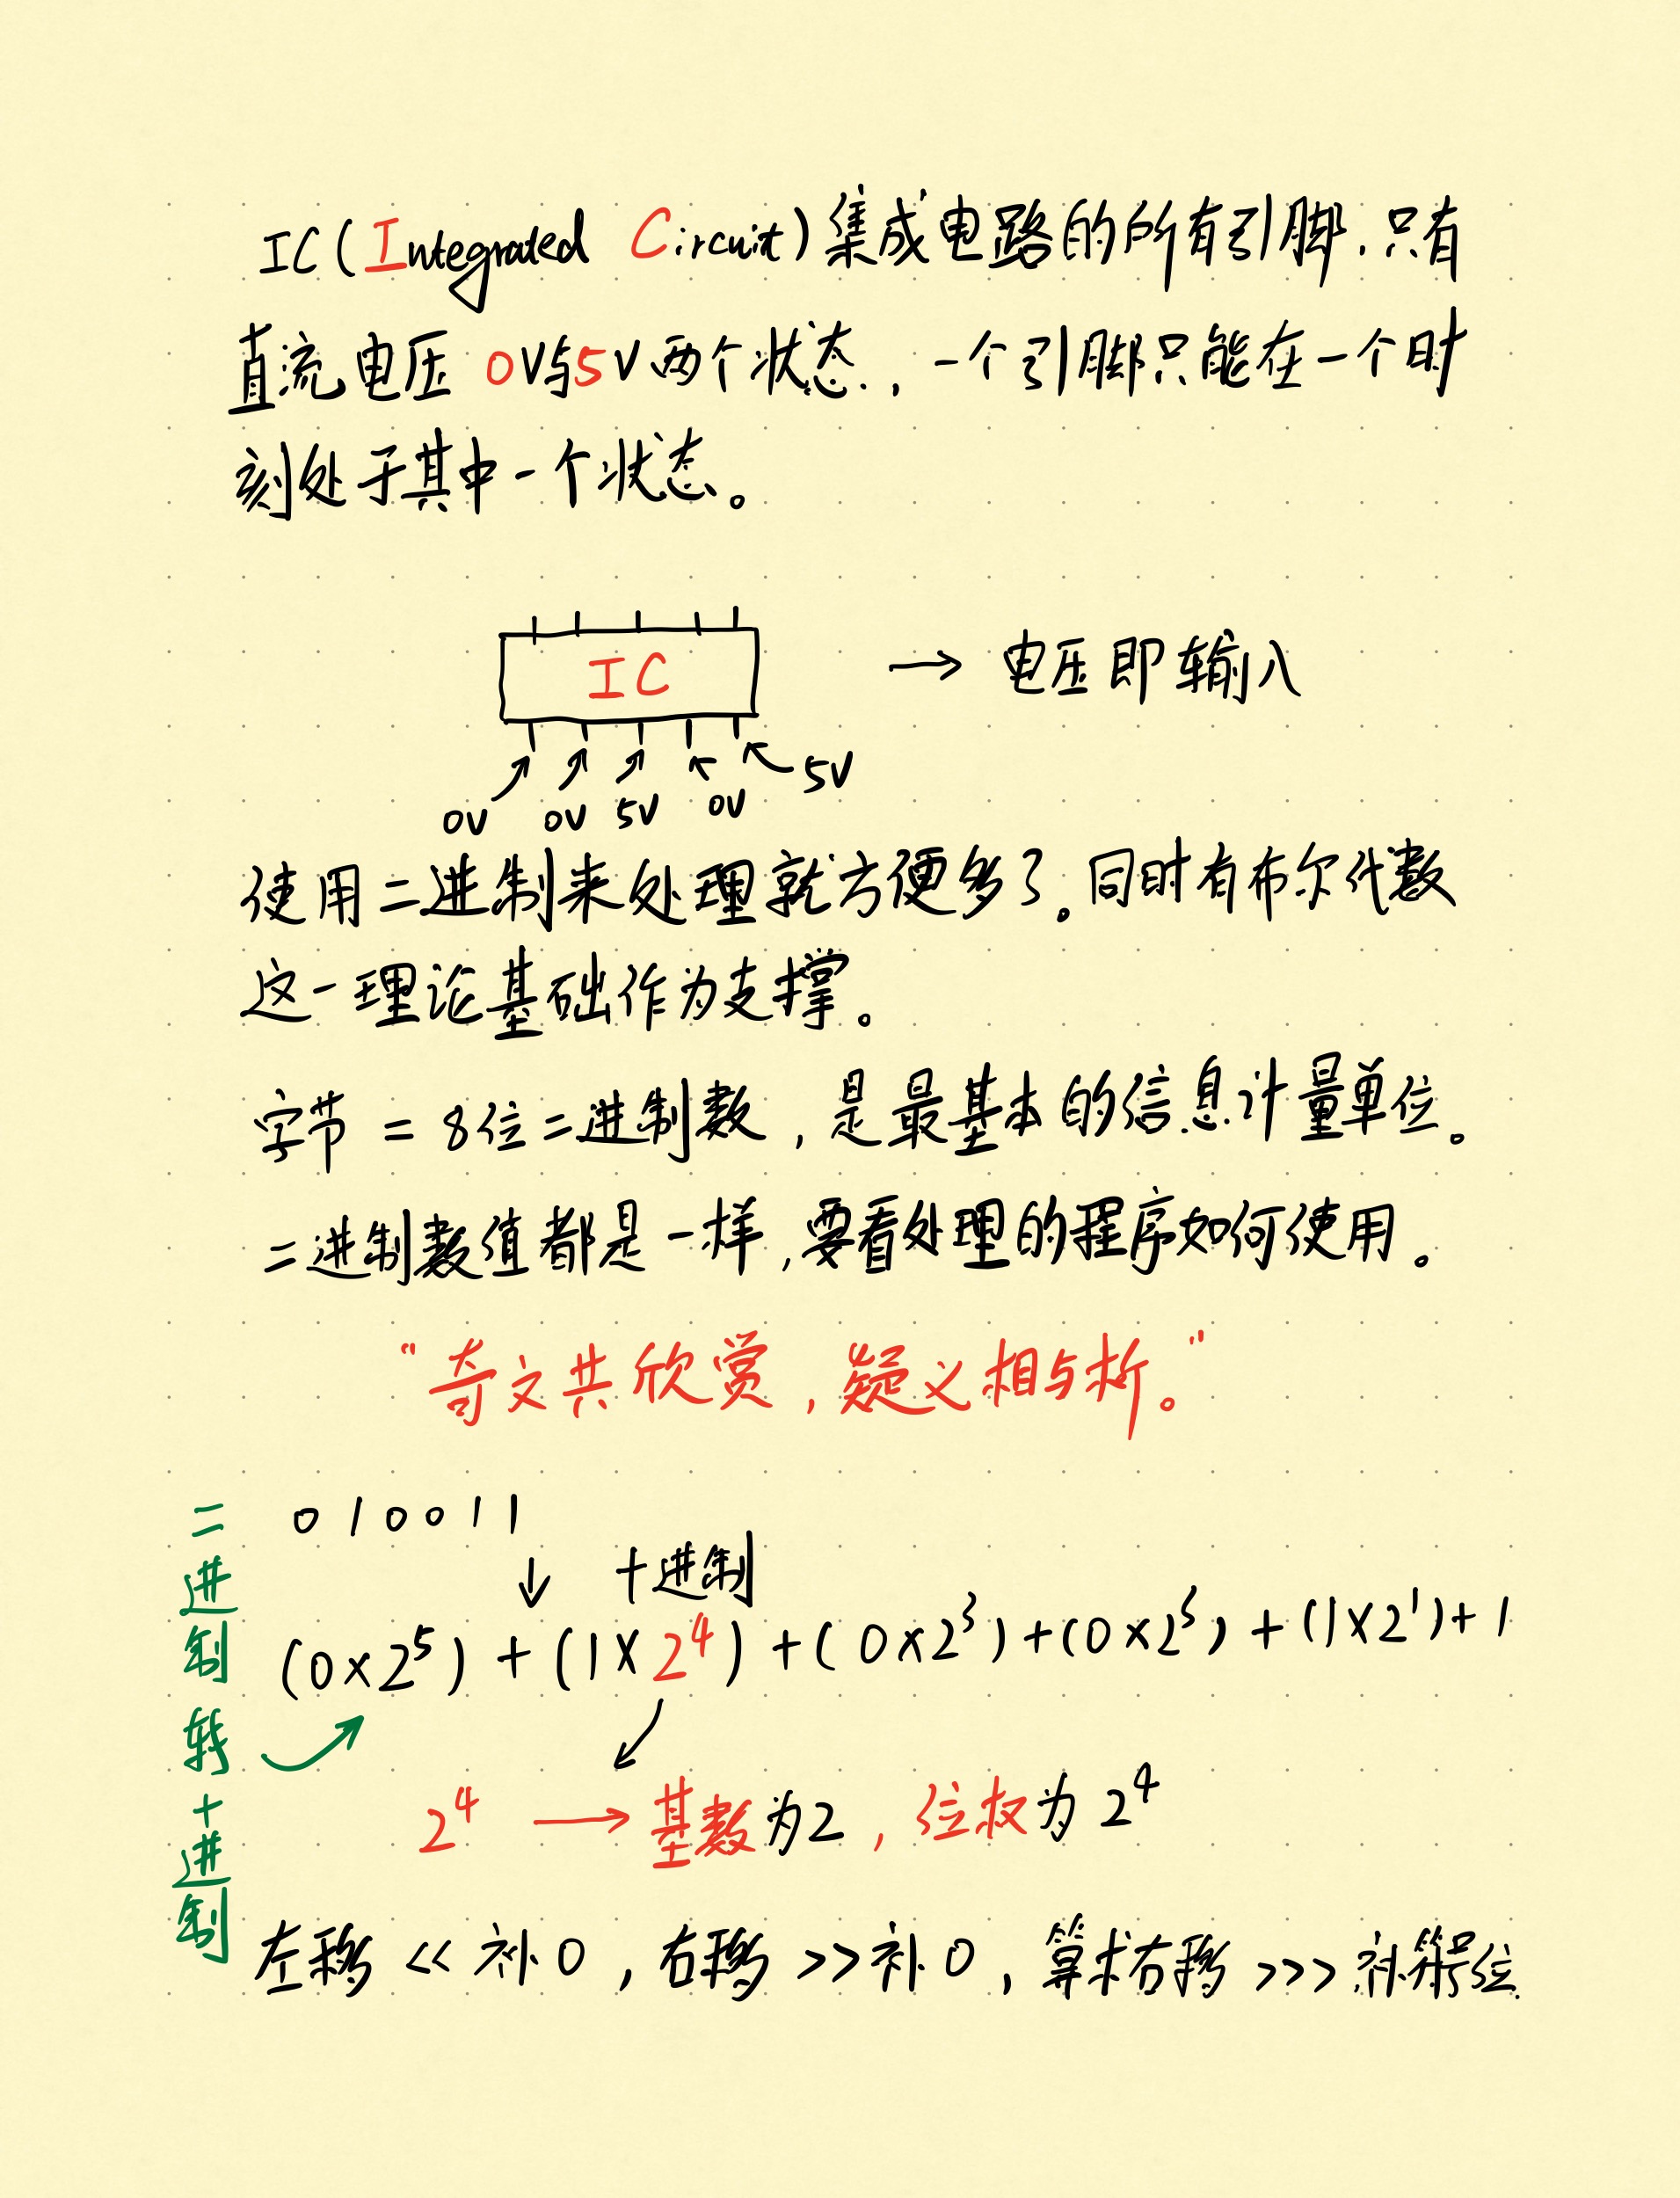 IC(Integrated Circuit)集成电路的所有引脚,只有
直流电压 0V与5V两个状态,一个引脚只能在一个时
刻处于其中一个状态。
IC
→ 电压即输入
0V 0V 5V 0V 5V
使用二进制来处理就方便多了。同时有布尔代数
这一理论基础作为支撑。
字节 = 8位二进制数,是最基本的信息计量单位。
二进制数值都是一样,要看处理的程序如何使用。
“奇文共欣赏,疑义相与析。”
二进制转十进制
010011
↓ 十进制
(0×2⁵) + (1×2⁴) + (0×2³) + (0×2⁵) + (1×2¹) + 1
2⁴ → 基数为2,位权为2⁴
左移 << 补0,右移 >> 补0,算术右移 >>> 补符号位.